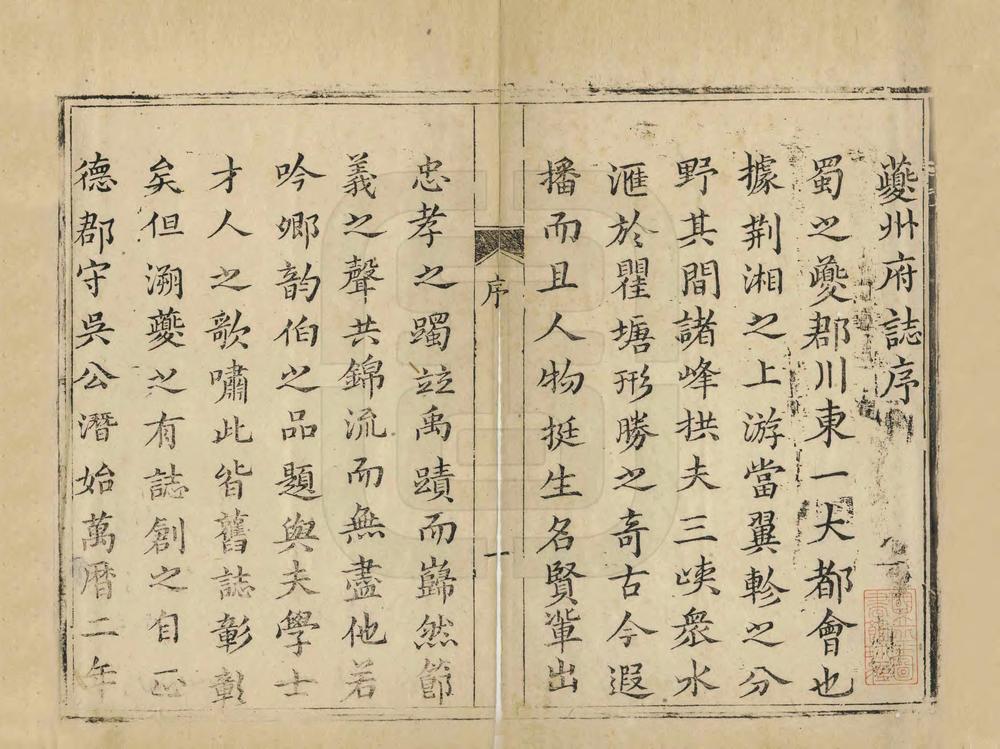 夔州府誌序
蜀之夔郡川東一大都會也
據荆湘之上游當翼軫之分
野其間諸峰拱夫三峽衆水
滙於瞿塘形勝之奇古今遐
播而且人物挺生名賢輩出
序
一
忠孝之躅竝禹蹟而巋然節
義之聲共錦流而無盡他若
吟鄉韵伯之品題與夫學士
才人之歌嘯此皆舊誌彰彰
矣但溯夔之有誌創之自正
德郡守吳公潛始萬曆二年